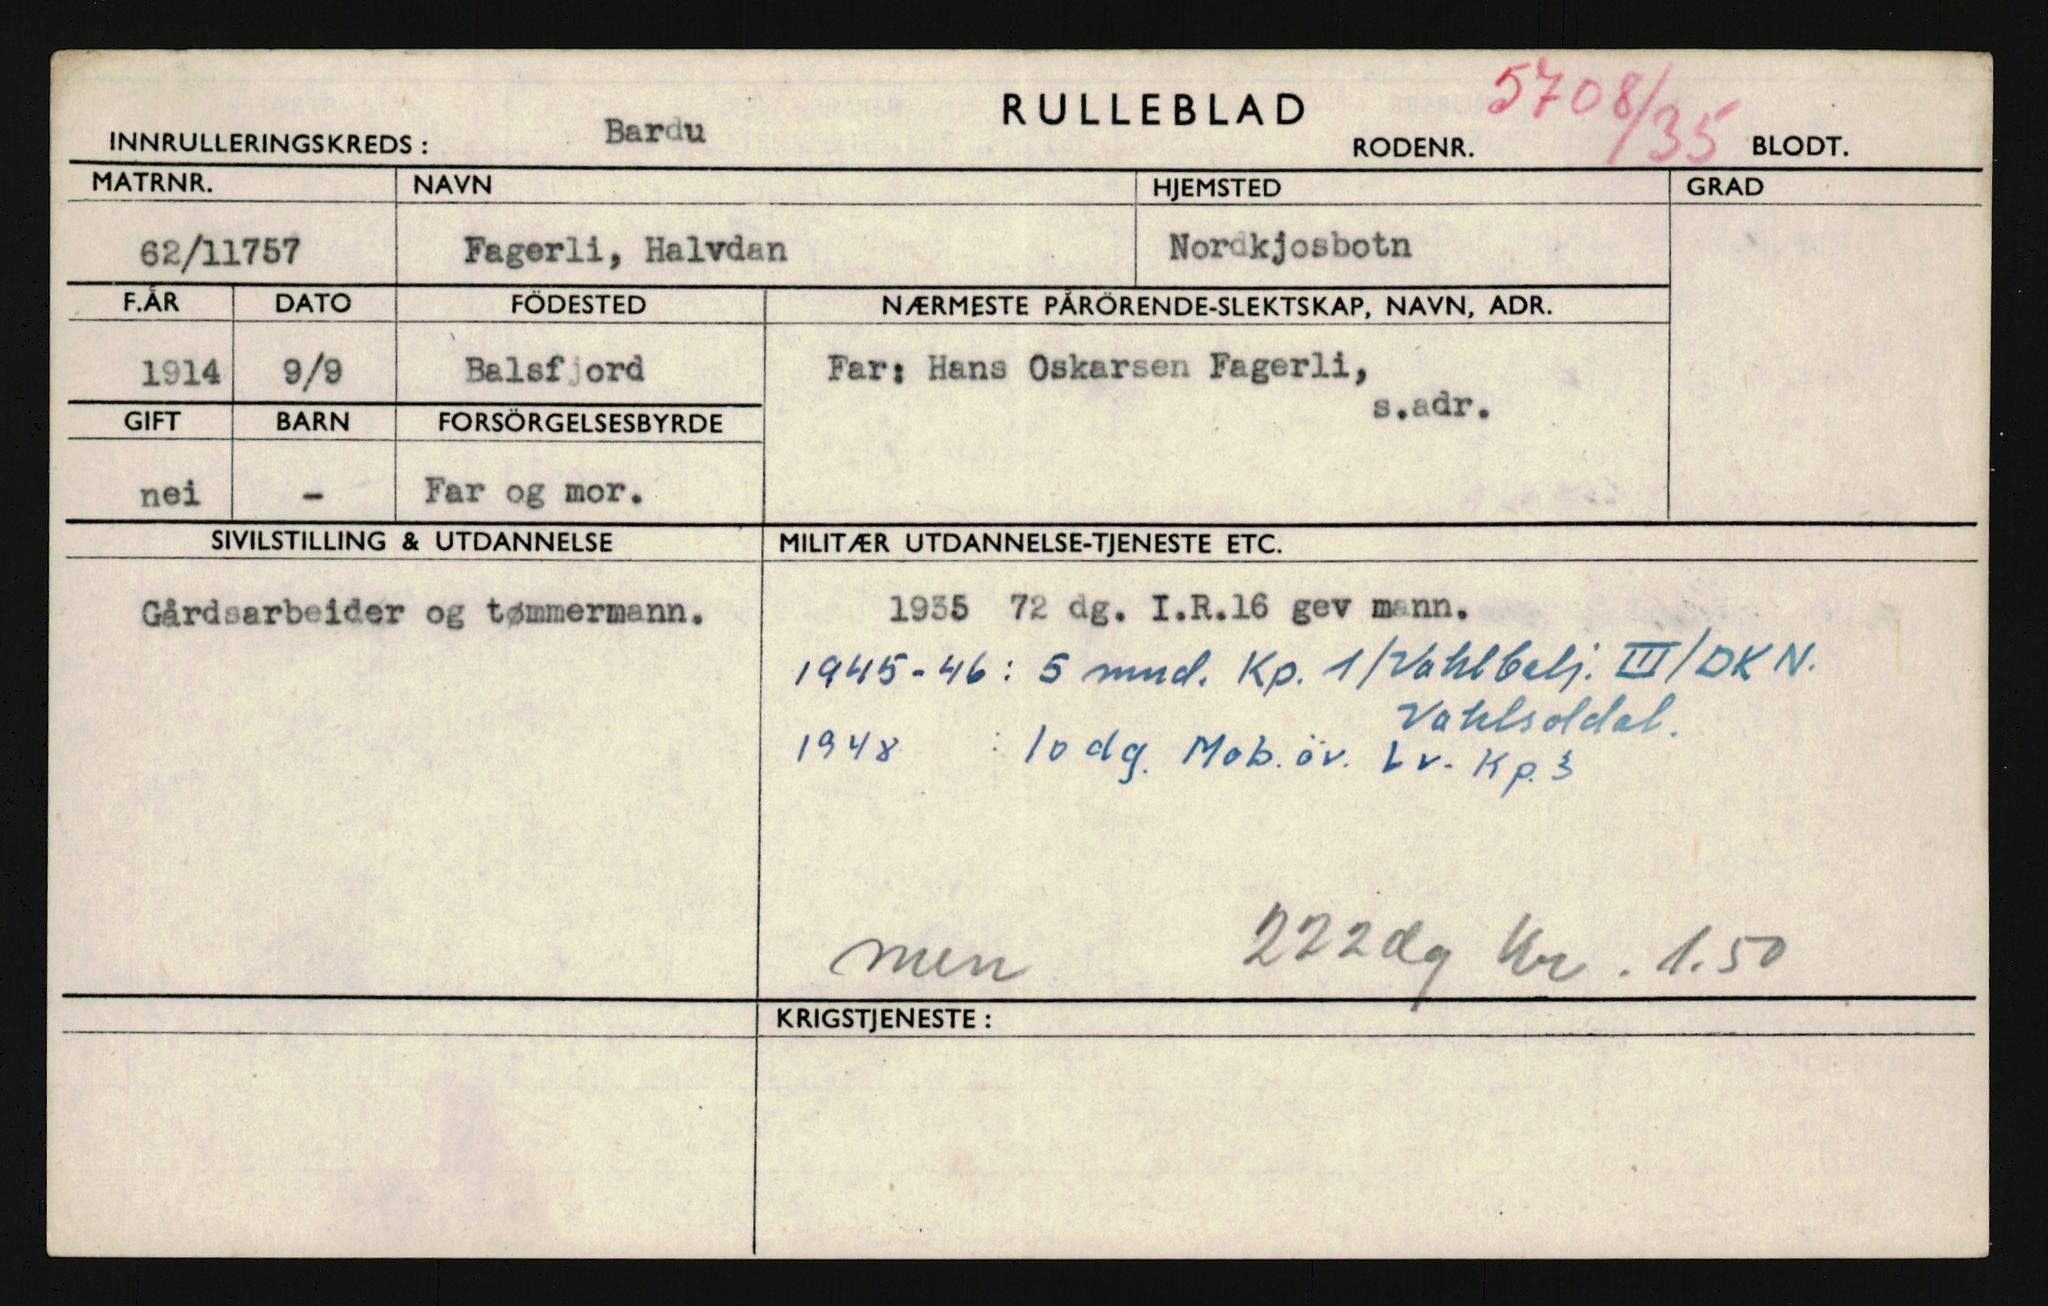 RULLEBLAD
5708/35
INNRULLERINGSKREDS: Bardu RODENR. BLODT.
MATRNR. NAVN HJEMSTED GRAD
62/11757 Fagerli, Halvdan Nordkjosbotn
F.ÅR DATO FÖDESTED NÆRMESTE PÅRÖRENDE-SLEKTSKAP, NAVN, ADR.
1914 9/9 Balsfjord Far: Hans Oskarsen Fagerli,
s.adr.
GIFT BARN FORSÖRGELSESBYRDE
nei - Far og mor.
SIVILSTILLING & UTDANNELSE MILITÆR UTDANNELSE-TJENESTE ETC.
Gårdsarbeider og tømmermann. 1935 72 dg. I.R.16 gev mann.
1945-46: 5 mnd. Kp. 1/Vaktbatj. III/DKN.
Vaktsoldat.
1948 : 10 dg. Mob.öv. Lv. Kp. 3
men 222dg Kr. 1.50
KRIGSTJENESTE: